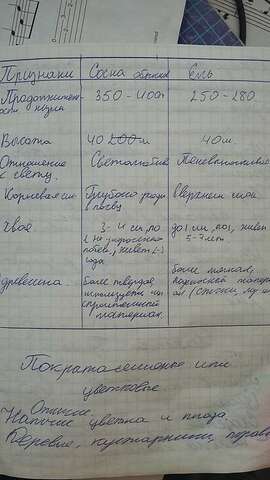 Признаки Сосна обыкнов Ель
Продолжительн
ости жизни 350-400л 250-280
Высота 40 м 40м.
Отношение
к свету. Светолюбив Теневыносливые
Корневая сис Глубоко уходи
в почву
Хвоя 3-4 см, по
2 на укороченно
побеге, живет 2-3
года
до 1 см, живет
5-7 лет.
древесина. Более твердая,
используется как
строительный
материал.
Более мягкая,
Покрытосеменные или
цветковые
Отличие.
Наличие цветка и плода.
Деревья, кустарники, травы